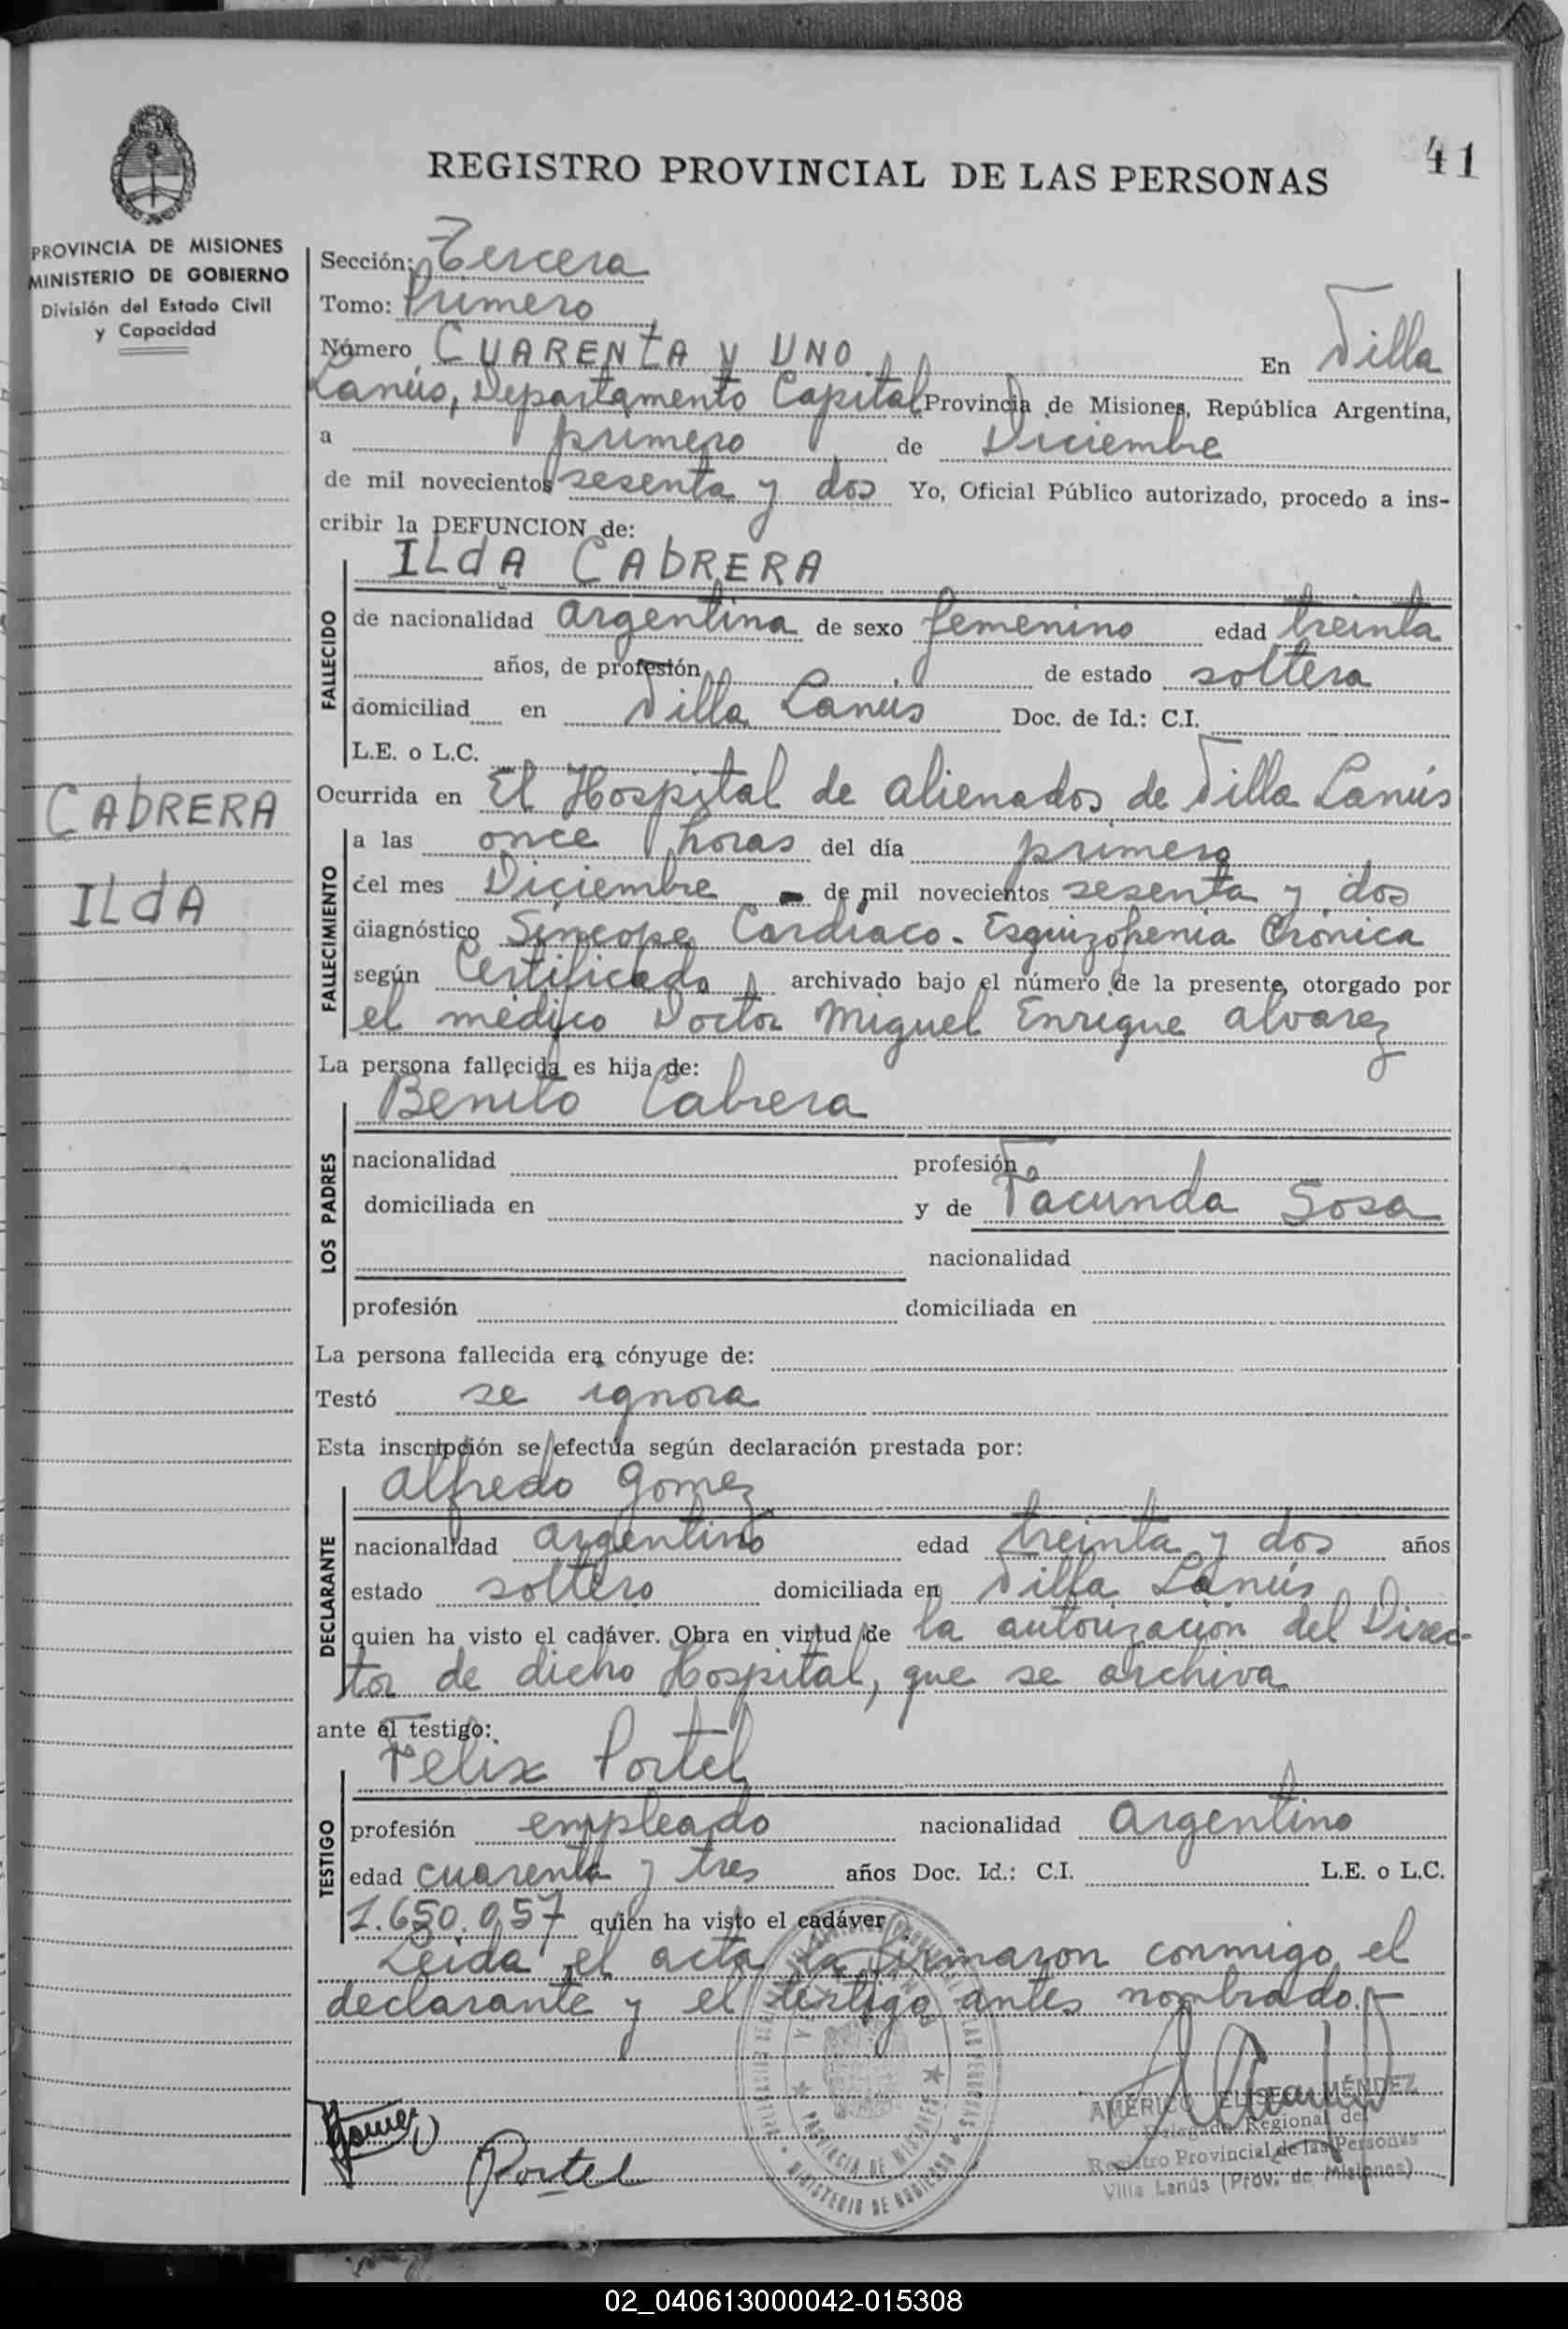 41
REGISTRO PROVINCIAL DE LAS PERSONAS
PROVINCIA DE MISIONES
MINISTERIO DE GOBIERNO
División del Estado Civil
y Capacidad
Sección: Tercera
Tomo: Primero
Número CUARENTA Y UNO En Villa
Lanús, Departamento Capital Provincia de Misiones, República Argentina,
a primero de Diciembre
de mil novecientos sesenta y dos Yo, Oficial Público autorizado, procedo a ins-
cribir la DEFUNCION de:
ILdA CAbRERA
FALLECIDO
de nacionalidad argentina de sexo femenino edad treinta
años, de profesión de estado soltera
domiciliad en Villa Lanús Doc. de Id.: C.I.
L.E. o L.C.
CAbRERA
ILdA
Ocurrida en El Hospital de alienados de Villa Lanús
FALLECIMIENTO
a las once horas del día primero
del mes Diciembre - de mil novecientos sesenta y dos
diagnóstico Síncope Cardíaco - Esquizofenia Crónica
según Certificado archivado bajo el número de la presente, otorgado por
el médico Doctor Miguel Enrique alvarez
La persona fallecida es hija de:
Benito Cabrera
LOS PADRES
nacionalidad profesión
domiciliada en y de Facunda Sosa
nacionalidad
profesión domiciliada en
La persona fallecida era cónyuge de:
Testó se ignora
Esta inscripción se efectúa según declaración prestada por:
alfredo gomez
DECLARANTE
nacionalidad argentino edad treinta y dos años
estado soltero domiciliada en Villa Lanús
quien ha visto el cadáver. Obra en virtud de la autorización del Direc-
tor de dicho Hospital, que se archiva
ante el testigo:
Felix Portel
TESTIGO
profesión empleado nacionalidad argentino
edad cuarenta y tres años Doc. Id.: C.I. L.E. o L.C.
1.650.957 quien ha visto el cadáver
Leida el acta la firmaron conmigo el
declarante y el testigo antes nombrado.-
Gomez
Portel
PROVINCIA DE MISIONES
MINISTERIO DE GOBIERNO
AMÉRICO ELISEO MÉNDEZ
Delegado Regional del
Registro Provincial de las Personas
Villa Lanús (Prov. de Misiones)
02_040613000042-015308